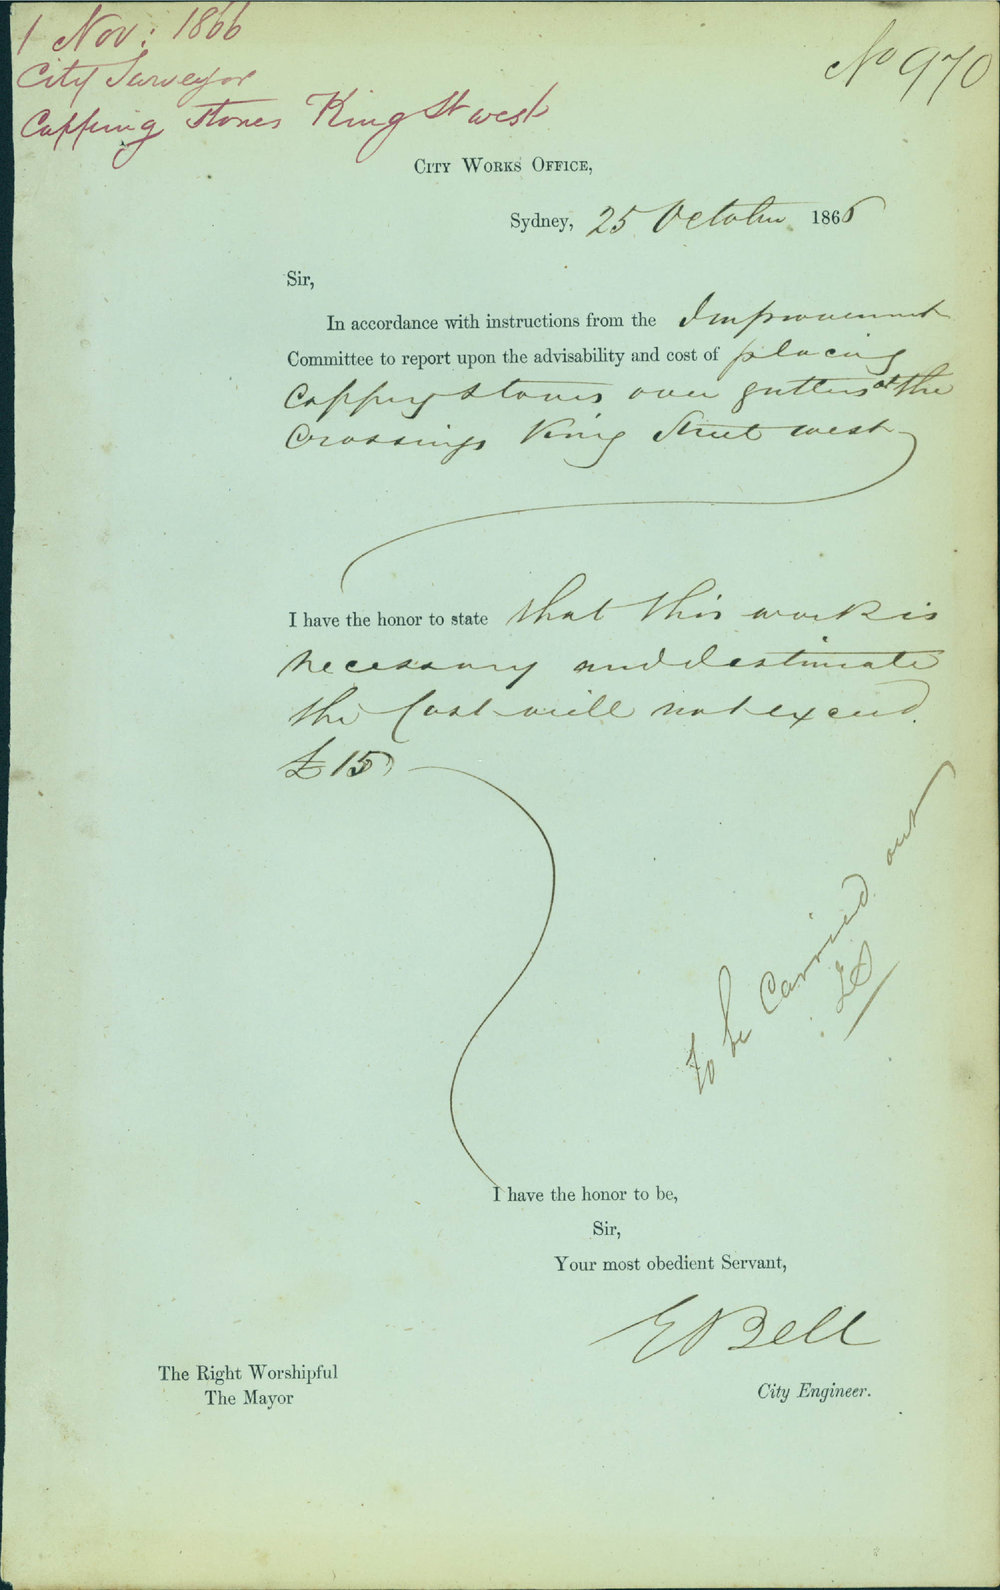 1 Nov: 1866
City Surveyor
Capping Stones King St west
No 970
City Works Office,
Sydney, 25 October 1866
Sir,
In accordance with instructions from the Improvement
Committee to report upon the advisability and cost of placing
Capping Stones over gutters at the
Crossings King Street west
I have the honor to state that this work is
necessary and I estimate
the Cost will not exceed
£15
To be Carried out
I have the honor to be,
Sir,
Your most obedient Servant,
E Bell
City Engineer.
The Right Worshipful
The Mayor